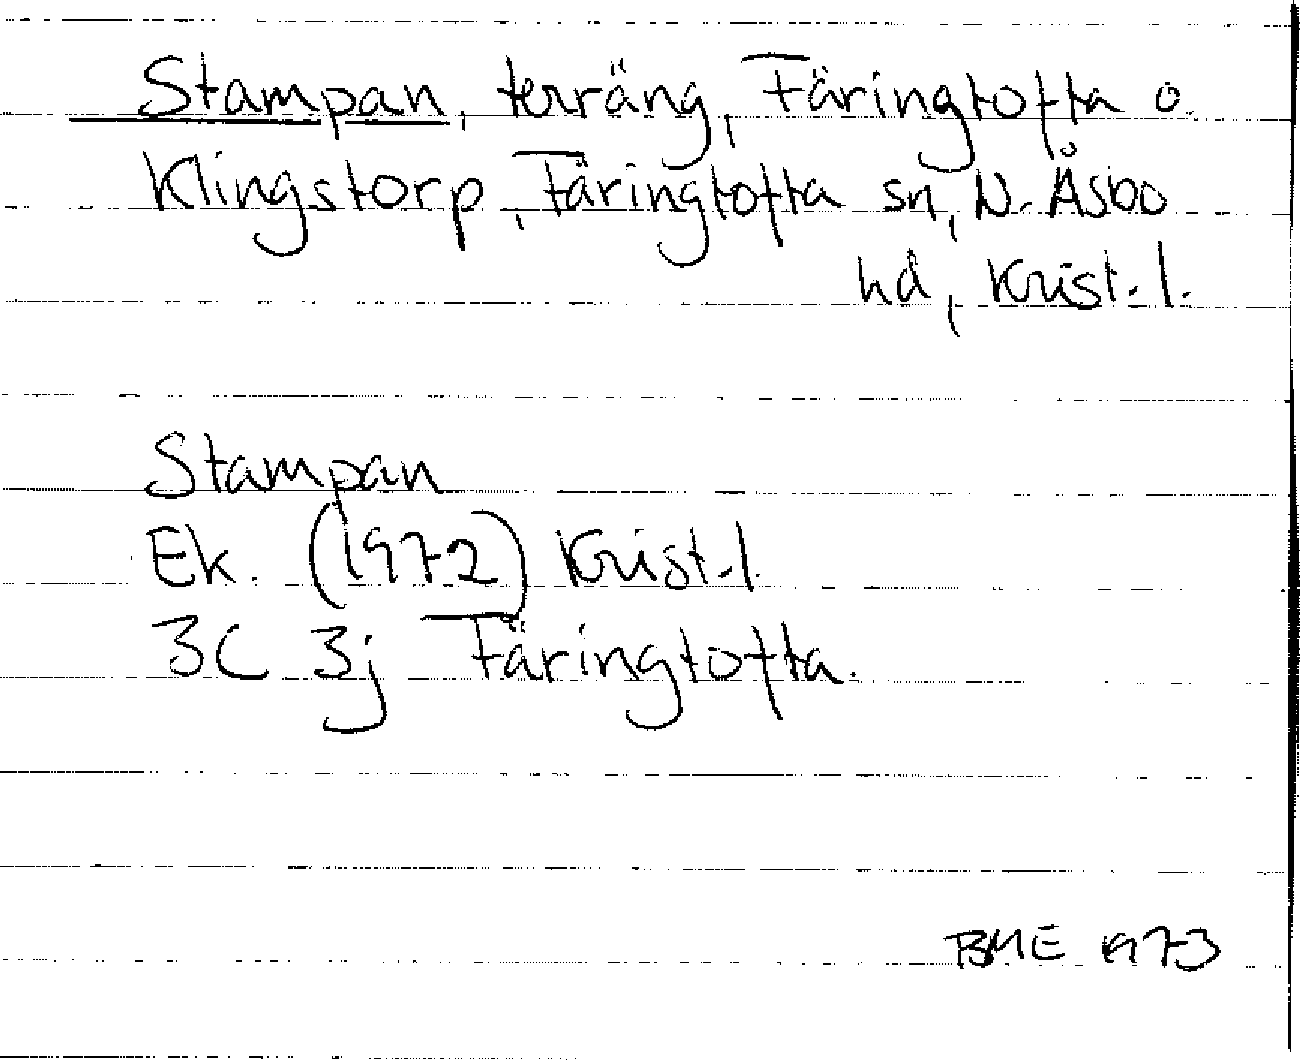 Stampan, terräng, Färingtofta o.
Klingstorp, Färingtofta sn, N. Åsbo
hd, Krist. l.
Stampan
Ek. (1972) Krist. l.
3C 3j Färingtofta.
BME 1973